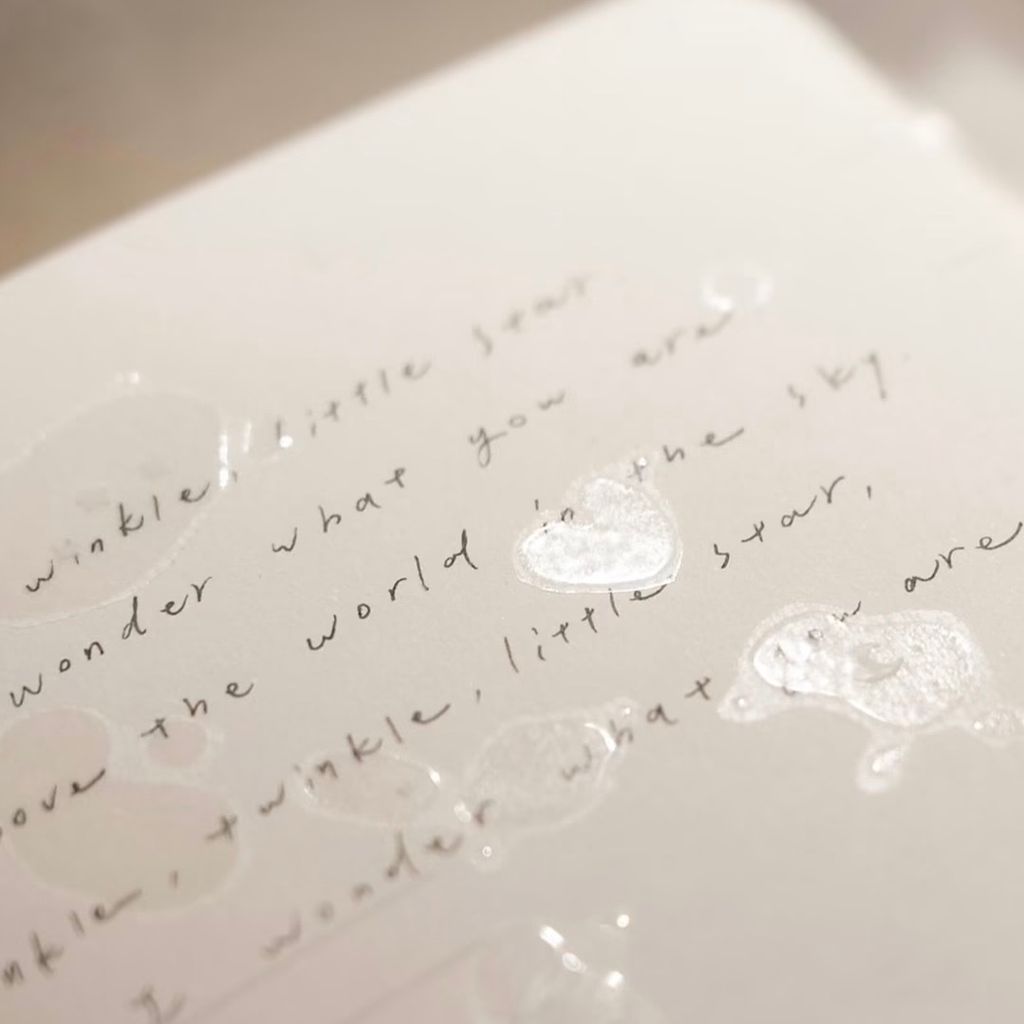 winkle, little star.
wonder what you are
ove the world in the sky.
nkle, twinkle, little star,
I wonder what you are